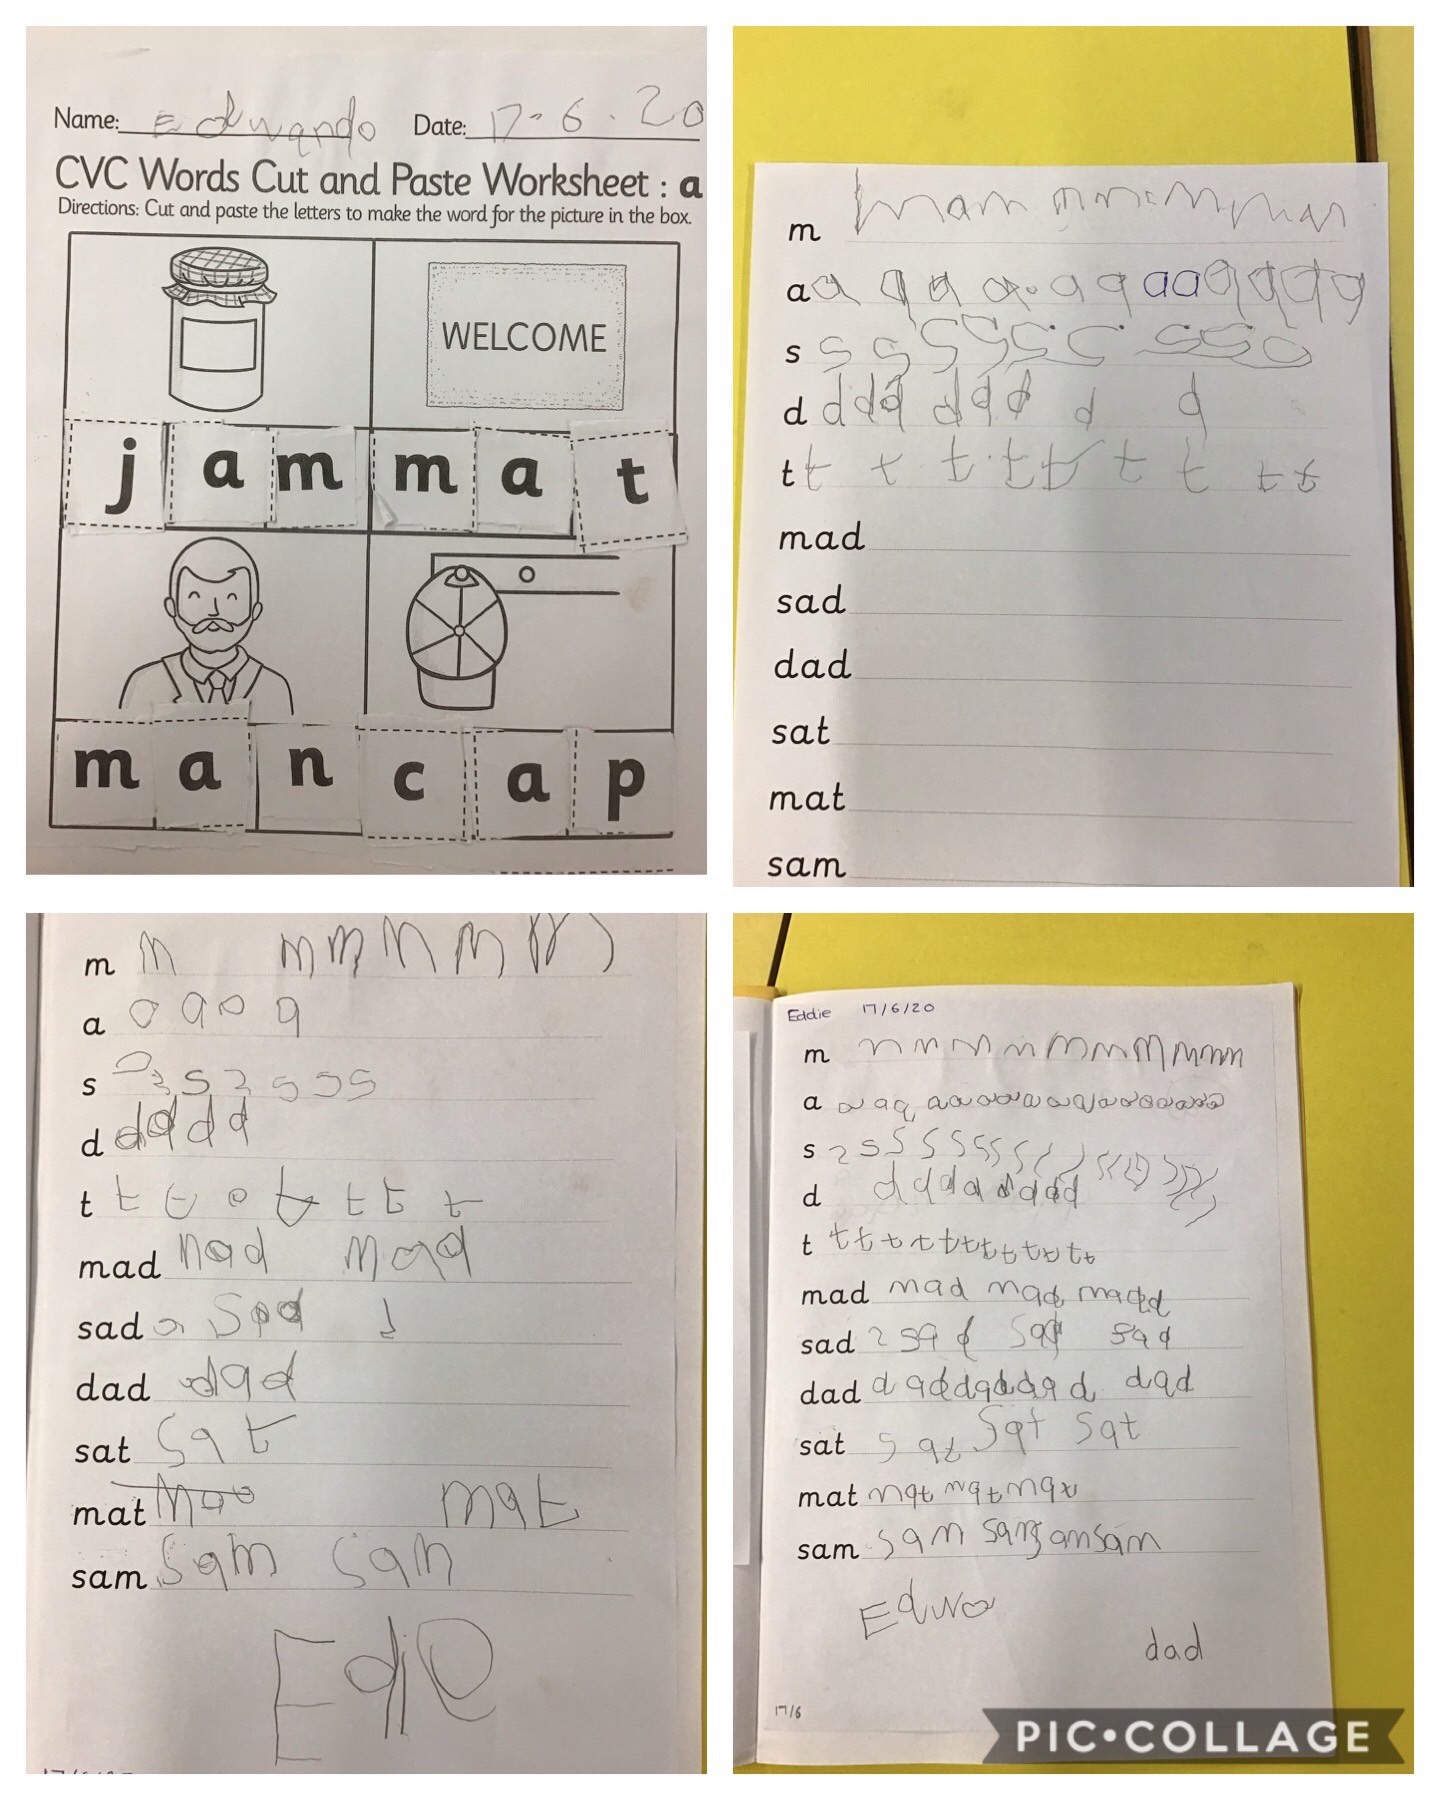 Name: Edwando Date: 17-6.20
CVC Words Cut and Paste Worksheet : a
Directions: Cut and paste the letters to make the word for the picture in the box.
WELCOME
j a m m a t
m a n c a p
m
a a a a a a a a a a a a a
s s s s s s
d d d d d d d d d
t t t t t t t t t t
mad
sad
dad
sat
mat
sam
m m m m m m
a a a a a
s s s s s
d d d d d
t t t t t t
mad mad mad
sad sad
dad dad
sat sat
mat mat
sam sam sam
Edie
Eddie 17/6/20
m m m m m m m m
a a a a
s s s s s s s s
d d d d d d d d d
t t t t t t t t t t t t
mad mad mad
sad sad sad sad
dad dad
sat sat sat sat
mat mat mat
sam sam sam sam sam
Edwa
dad
17/6
PIC•COLLAGE